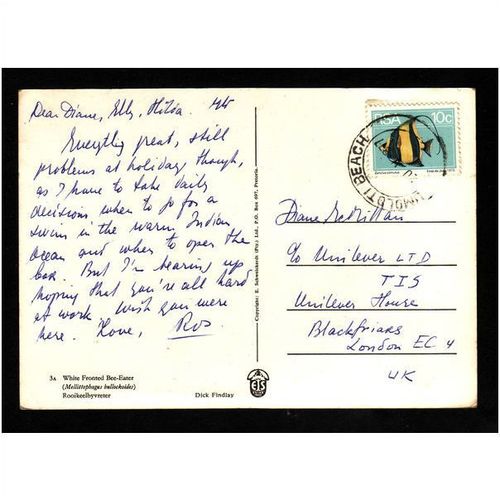 Dear Diane, Elly, Hilda.
Everything great, still
problems at holiday though,
as I have to take daily
decisions, when to go for a
swim in the warm Indian
Ocean and when to open the
bar. But I'm bearing up
hoping that you're all hard
at work. Wish you were
here. Love, Ros
3A White Fronted Bee-Eater
(Mellittophagus bullockoides)
Rooikeelbyvreter
Dick Findlay
Copyright: E. Schweickerdt (Pty.) Ltd., P.O. Box 697, Pretoria.
RSA 10c
UMDLOTI BEACH
Diane McMillan
c/o Unilever LTD
TIS
Unilever House
Blackfriars
London EC4
UK